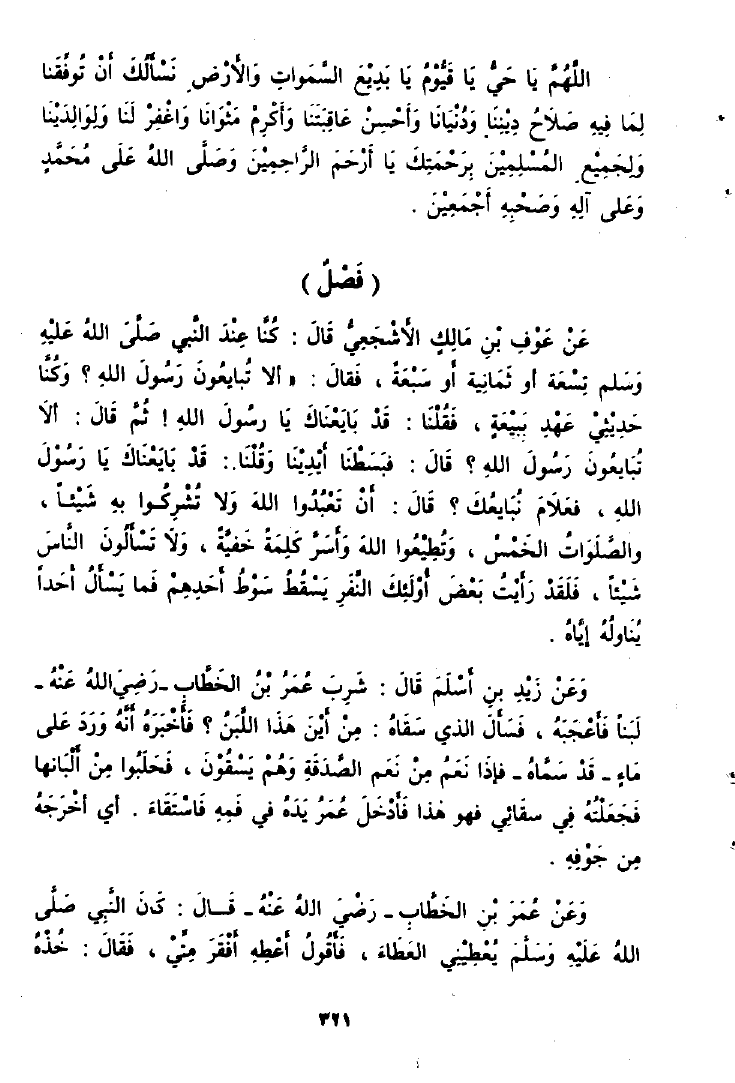 اللَّهُمَّ يَا حَيُّ يَا قَيُّوْمُ يَا بَدِيْعَ السَّمَواتِ وَالأَرْضِ نَسْأَلُكَ أَنْ تُوفِّقَنا
لِمَا فِيهِ صَلَاحُ دِيْنِنَا وَدُنْيَانَا وَأَحْسِنْ عَاقِبَتَنا وَأَكْرِمْ مَثْوَانَا وَاغْفِرْ لَنا وَلِوَالِدَيْنَا
وَلِجَمِيْعِ المُسْلِمِيْنَ بِرَحْمَتِكَ يَا أَرْحَمَ الرَّاحِمِيْنَ وَصَلَّى اللهُ عَلَى مُحَمَّدٍ
وَعَلى آلِهِ وَصَحْبِهِ أَجْمَعِيْنَ .
( فَصْلٌ )
عَنْ عَوْفِ بْنِ مَالِكٍ الأَشْجَعِيُّ قَالَ : كُنَّا عِنْدَ النَّبي صَلَّىَ اللهُ عَلَيْهِ
وَسَلم تِسْعَة أو ثَمَانِية أَو سَبْعَةً ، فَقالَ : « ألا تُبايعُونَ رَسُولَ اللهِ ؟ وَكُنَّا
حَدِيْثِيْ عَهْدٍ بِبَيْعَةٍ ، فَقُلْنَا : قَدْ بَايَعْنَاكَ يَا رسُولَ اللهِ ! ثُمَّ قَالَ : ألَا
تُبَايعُونَ رَسُولَ اللهِ ؟ قَالَ : فبَسَطْنَا أَيْدِيْنَا وَقُلْنَا : قَدْ بَايَعْنَاكَ يَا رَسُوْلَ
اللهِ ، فعَلَامَ نُبَايعُكَ ؟ قَالَ : أَنْ تَعْبُدُوا اللهَ وَلا تُشْرِكُـوا بِهِ شَيْئـاً ،
والصَّلَوَاتُ الخَمْسُ ، وَتُطِيْعُوا اللهَ وَأَسَرَّ كَلِمَةً خَفِيَّةً ، وَلَا تَسْأَلُونَ النَّاسَ
شَيْئاً ، فَلَقَدْ رَأَيْتُ بَعْضَ أُوْلَئِكَ النَّفَرِ يَسْقُطُ سَوْطُ أَحَدِهِمْ فَما يَسْأَلُ أَحَداً
يُنَاولُهُ إيَّاهُ .
وَعَنْ زَيْدِ بنِ أَسْلَمَ قَالَ : شَرِبَ عُمَرُ بْنُ الخَطَّابِ ـ رَضِيَ اللهُ عَنْهُ ـ
لَبَناً فَأَعْجَبَهُ ، فَسَأَلَ الذي سَقَاهُ : مِنْ أَيْنَ هَذَا اللَّبَنُ ؟ فَأَخْبَرَهُ أَنَّهُ وَرَدَ عَلى
مَاءٍ ـ قَدْ سَمَّاهُ ـ فإذَا نَعَمُ مِنْ نَعَم الصَّدَقَةِ وَهُمْ يَسْقُوْنَ ، فَحَلَبُوا مِنْ أَلْبَانها
فَجَعَلْتُهُ فِي سقَائِي فهو هٰذا فَأَدْخَلَ عُمَرُ يَدَهُ في فَمِهِ فَاسْتَقَاءَ . أي أخْرَجَهُ
مِن جَوْفِهِ .
وَعَنْ عُمَرَ بْنِ الخَطَّابِ ـ رَضْيَ اللهُ عَنْهُ ـ قَـالَ : كَانَ النَّبي صَلَّى
اللهُ عَلَيْهِ وَسَلَّمَ يُعْطِيْنِي العَطَاءَ ، فَأَقُولُ أَعْطِهِ أَفْقَرَ مِنِّيْ ، فَقَالَ : خُذْهُ
٣٢١